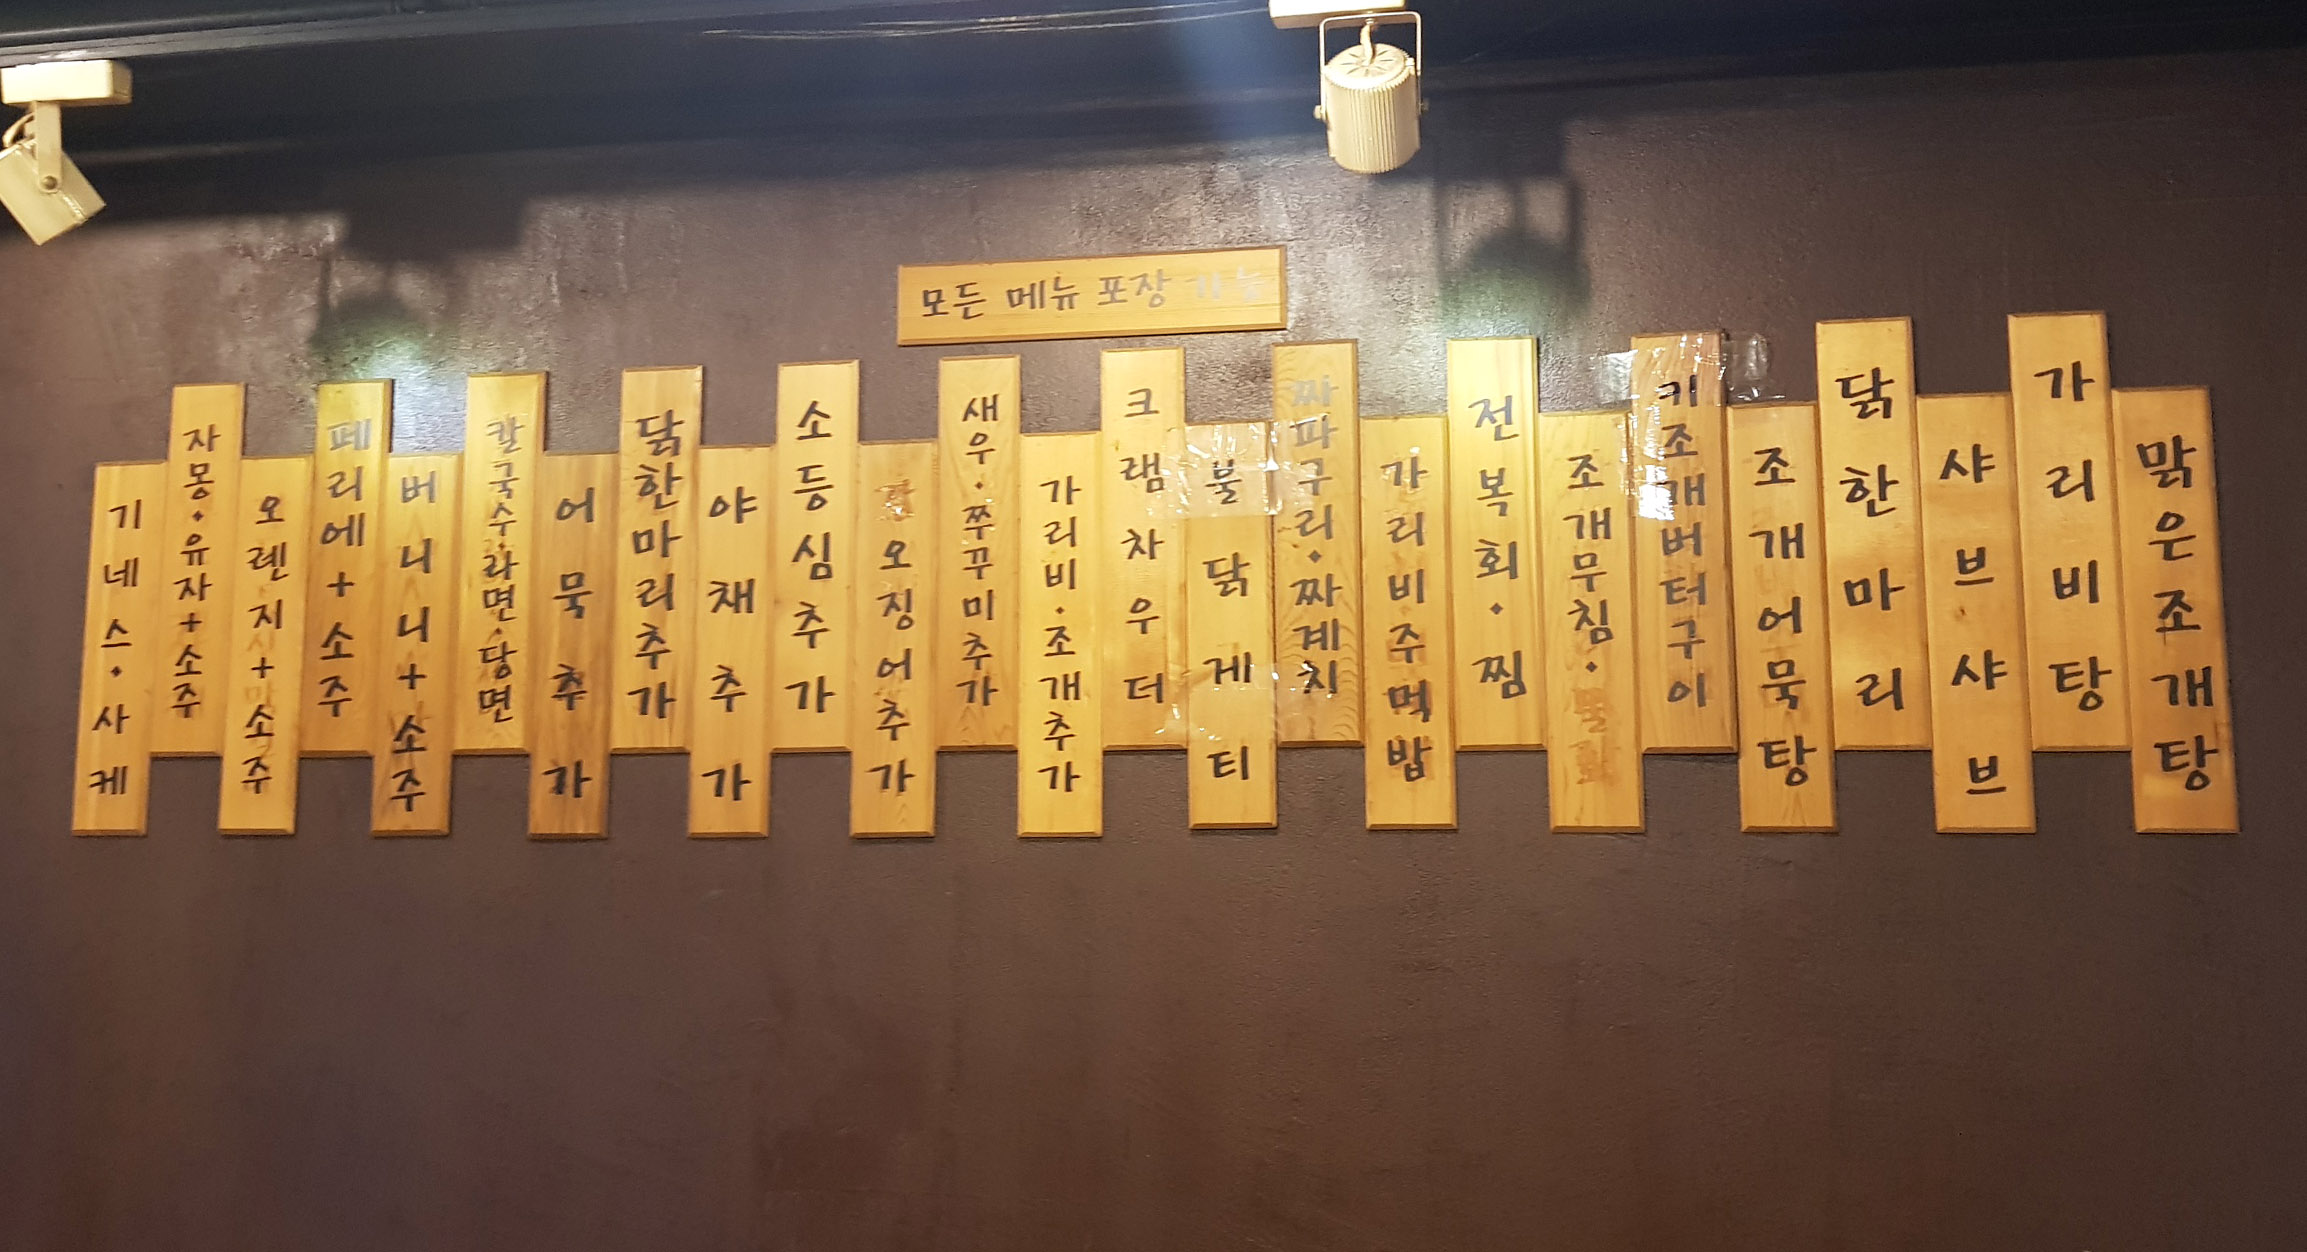 모든 메뉴 포장 가능
기네스·사케
자몽·유자+소주
오렌지+소주
페리에+소주
버니니+소주
칼국수·라면·당면
어묵추가
닭한마리추가
야채추가
소등심추가
오징어추가
새우·쭈꾸미추가
가리비·조개추가
크램차우더
불닭게티
짜파구리·짜계치
가리비주먹밥
전복회·찜
조개무침·
키조개버터구이
조개어묵탕
닭한마리
샤브샤브
가리비탕
맑은조개탕